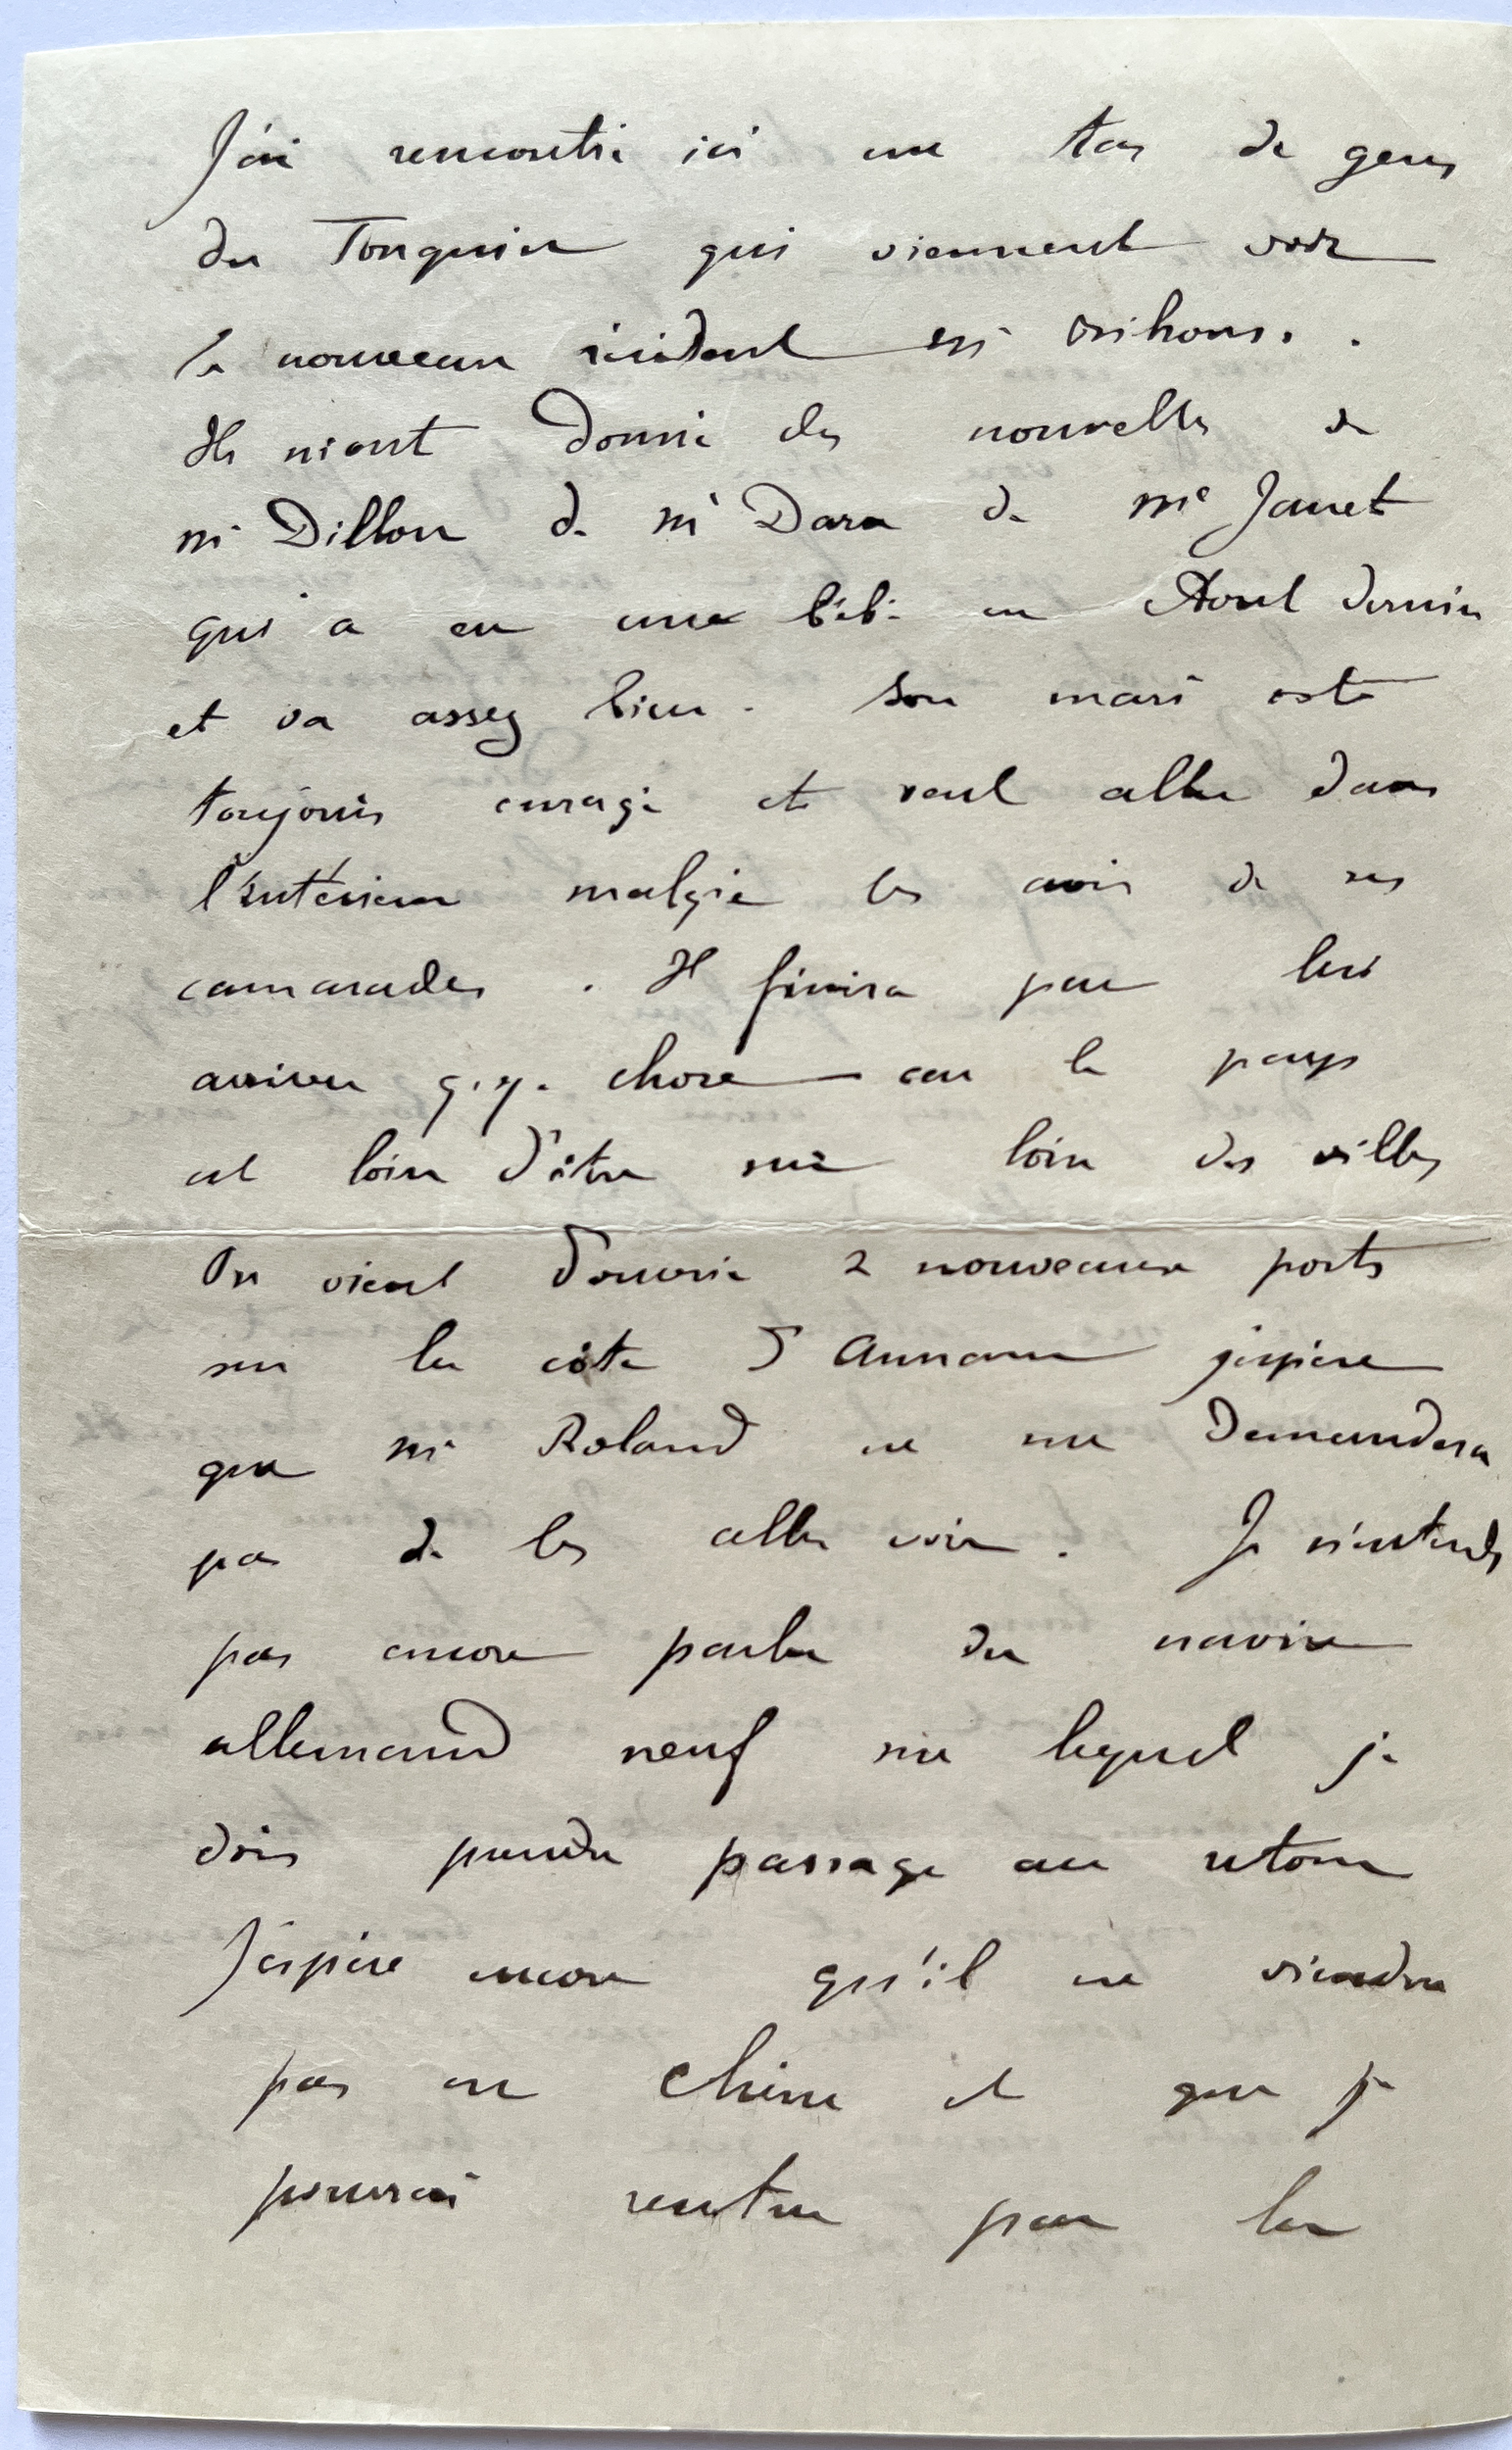 J'ai rencontré ici un tas de gens
du Tonquin qui viennent voir
le nouveau résident M. Bihourd.
Ils m'ont donné des nouvelles de
Mr Dillon de Mr Dara de Me Janet
qui a eu une bébé en Aout dernier
et va assez bien. Son mari est
toujours enragé et veut aller dans
l'intérieur malgré les avis de ses
camarades. Il finira par lui
arriver q.q. chose car le pays
est loin d'être sur loin des villes
On vient d'ouvrir 2 nouveaux ports
sur la côte d'Annam j'espère
que Mr Roland ne me demandera
pas de les aller voir. Je n'entends
pas encore parler du navire
allemand neuf sur lequel je
dois prendre passage au retour
J'espère encore qu'il ne viendra
pas en Chine et que je
pourrai rentrer par la